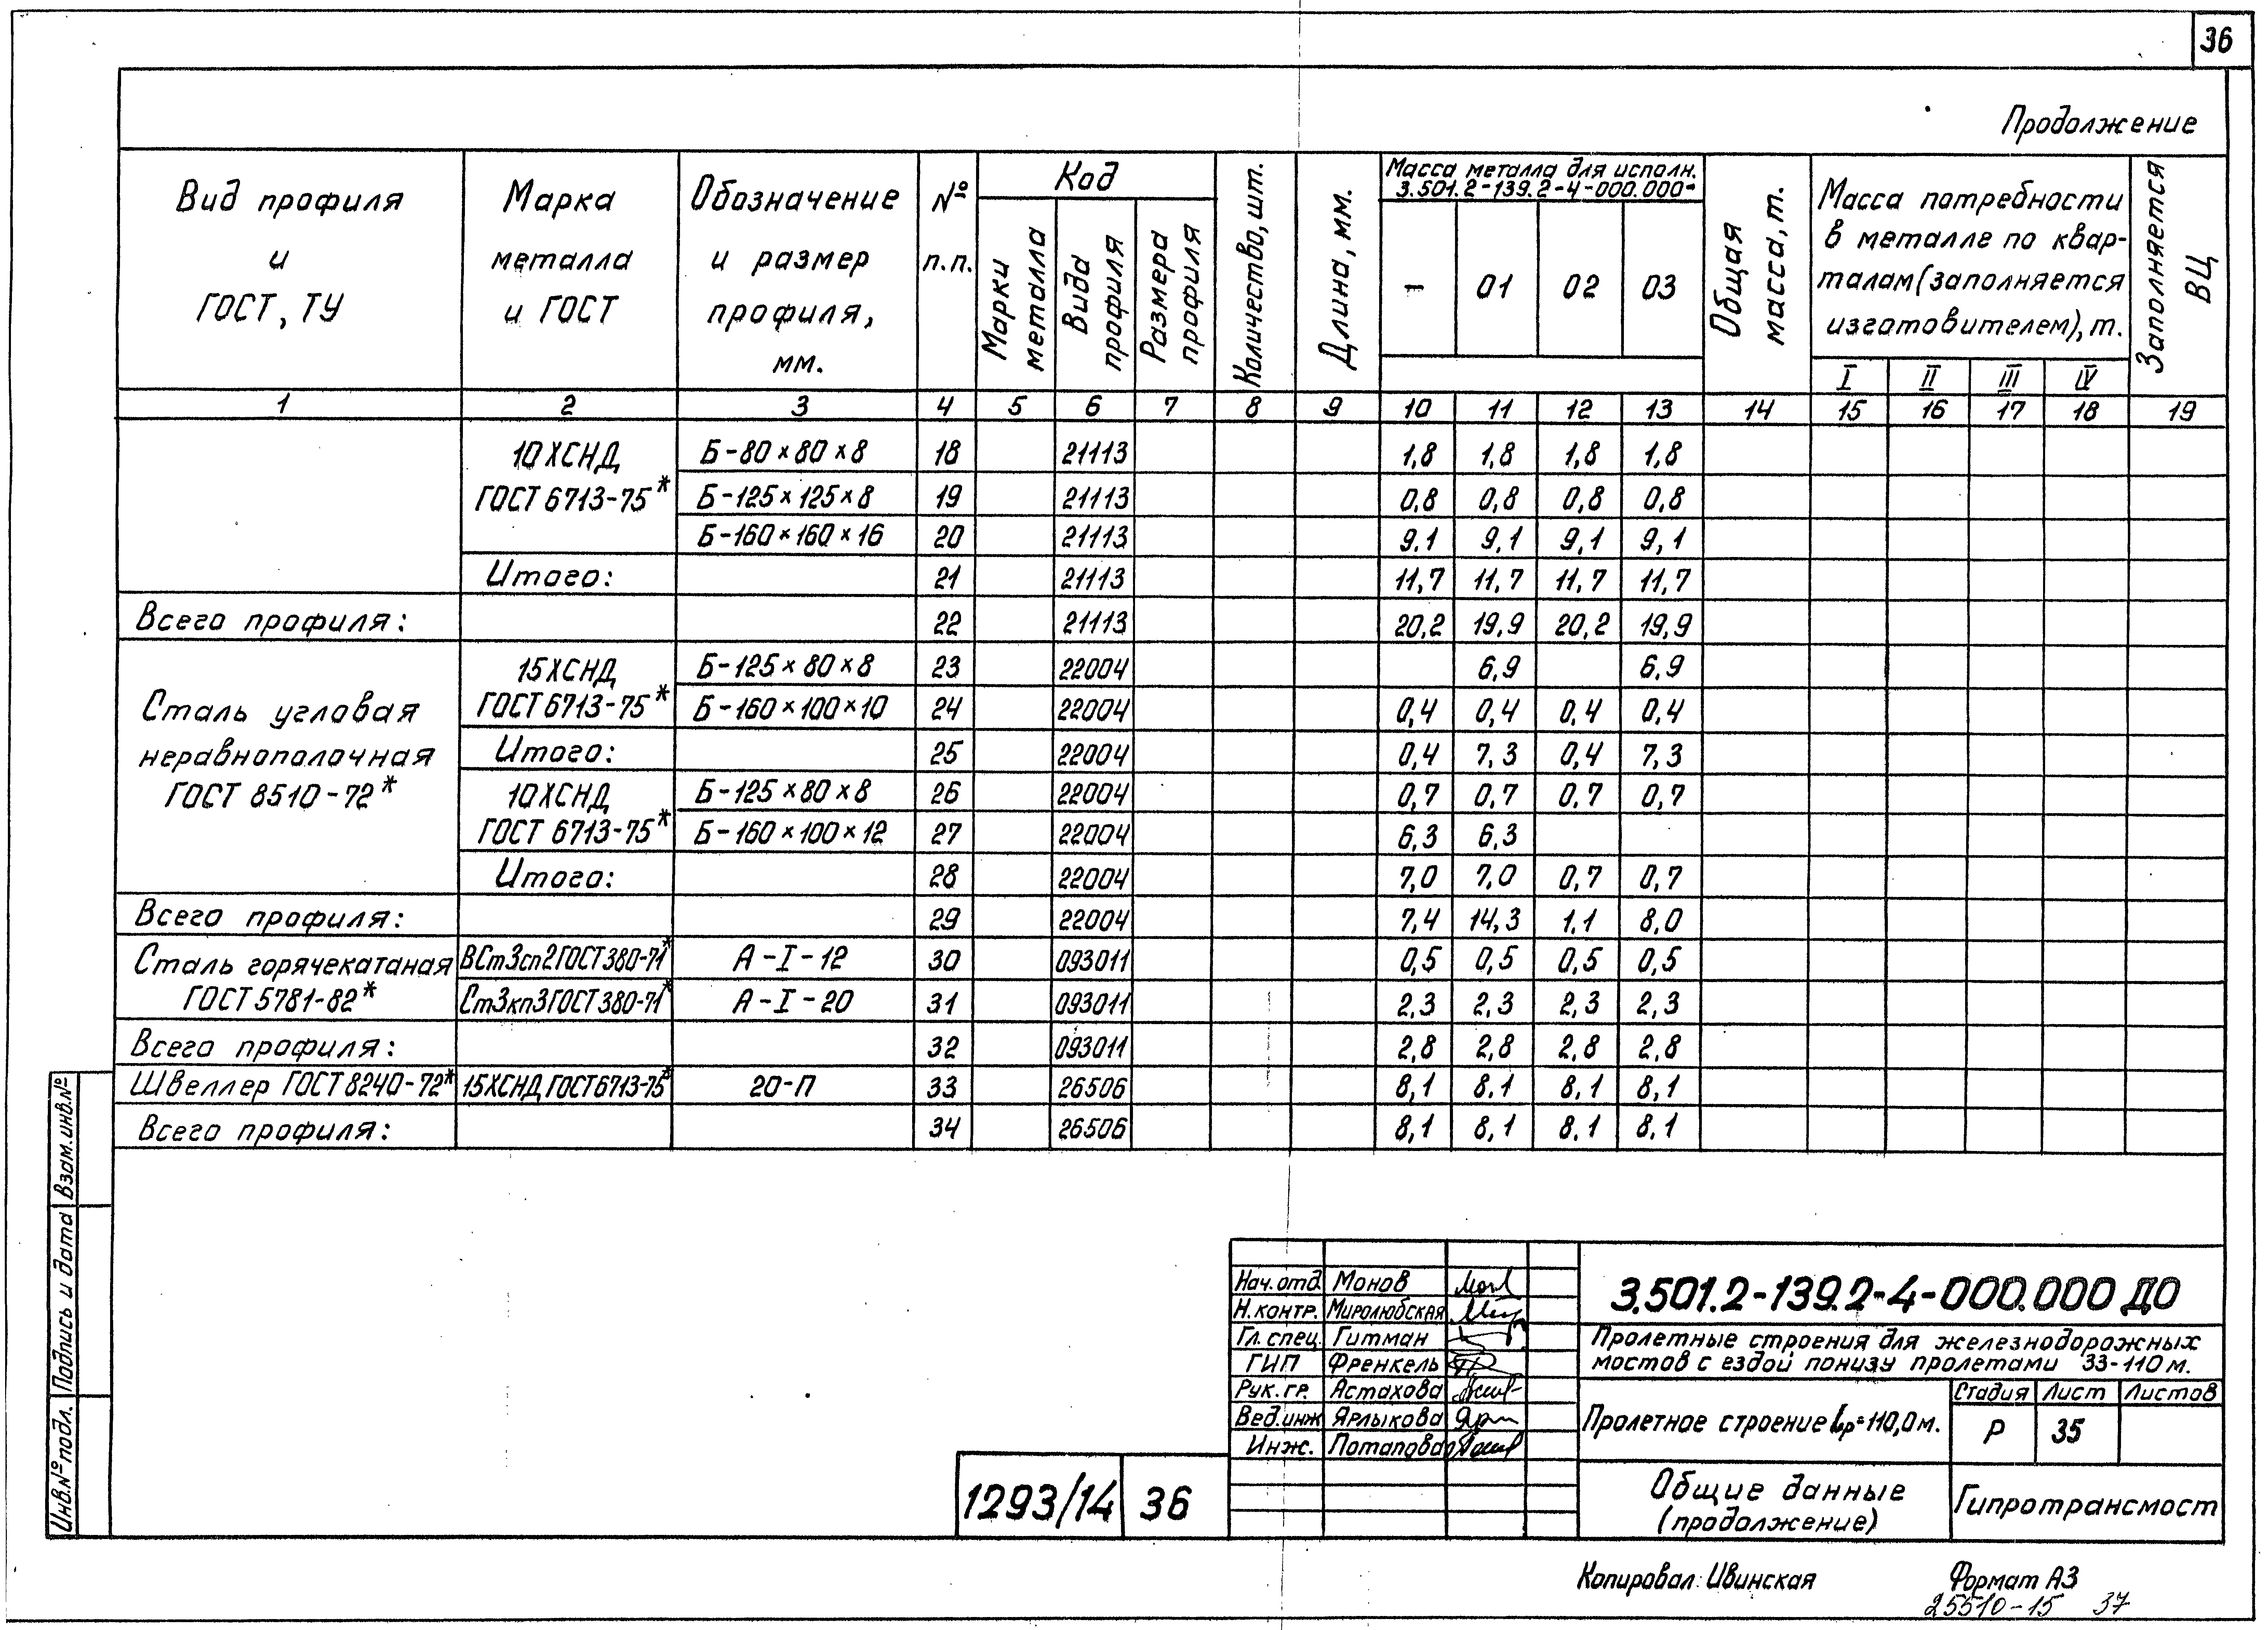 36
Продолжение
Вид профиля и ГОСТ, ТУ
Марка металла и ГОСТ
Обозначение и размер профиля, мм.
№ п.п.
Код
Марки металла
Вида профиля
Размера профиля
Количество, шт.
Длина, мм.
Масса металла для исполн. 3.501.2-139.2-4-000.000-
– 01 02 03
Общая масса, т.
Масса потребности в металле по кварталам (заполняется изготовителем), т.
I II III IV
Заполняется ВЦ
1 2 3 4 5 6 7 8 9 10 11 12 13 14 15 16 17 18 19
10ХСНД Б-80×80×8 18 21113 1,8 1,8 1,8 1,8
ГОСТ 6713-75* Б-125×125×8 19 21113 0,8 0,8 0,8 0,8
Б-160×160×16 20 21113 9.1 9,1 9,1 9,1
Итого: 21 21113 11,7 11,7 11,7 11,7
Всего профиля: 22 21113 20,2 19,9 20,2 19,9
15ХСНД Б-125×80×8 23 22004 6,9 6,9
Сталь угловая ГОСТ 6713-75* Б-160×100×10 24 22004 0,4 0,4 0,4 0,4
неравнополочная Итого: 25 22004 0,4 7,3 0,4 7,3
ГОСТ 8510-72* 10ХСНД Б-125×80×8 26 22004 0,7 0,7 0,7 0,7
ГОСТ 6713-75* Б-160×100×12 27 22004 6,3 6,3
Итого: 28 22004 7,0 7,0 0,7 0,7
Всего профиля: 29 22004 7,4 14,3 1.1 8,0
Сталь горячекатаная ВСт3сп2 ГОСТ 380-71* А-I-12 30 093011 0,5 0,5 0,5 0,5
ГОСТ 5781-82* Ст3кп3 ГОСТ 380-71* А-I-20 31 093011 2,3 2,3 2,3 2,3
Всего профиля: 32 093011 2,8 2,8 2,8 2,8
Швеллер ГОСТ 8240-72* 15ХСНД ГОСТ 6713-75* 20-П 33 26506 8,1 8.1 8,1 8,1
Всего профиля: 34 26506 8,1 8,1 8.1 8.1
Взам. инв. №
Подпись и дата
Инв. № подл.
Нач. отд. Монов
Н. контр. Миролюбская
Гл. спец. Гитман
ГИП Френкель
Рук. гр. Астахова
Вед. инж Ярлыкова
Инж. Потапова
3.501.2-139.2-4-000.000 ДО
Пролетные строения для железнодорожных
мостов с ездой понизу пролетами 33-110 м.
Пролетное строение Lр=110,0 м.
Стадия Лист Листов
Р 35
Общие данные
(продолжение)
Гипротрансмост
1293/14 36
Копировал: Ивинская
Формат А3
25510-15 37